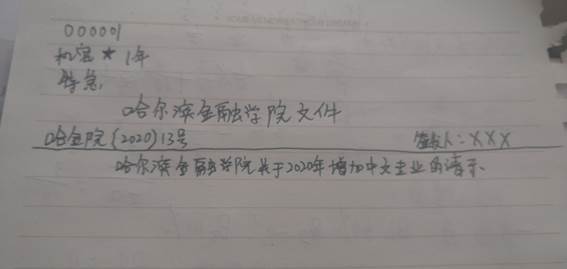 000001
机密★1年
特急
哈尔滨金融学院文件
哈金院{2020}13号 签发人:XXX
哈尔滨金融学院关于2020年增加中文专业的请示